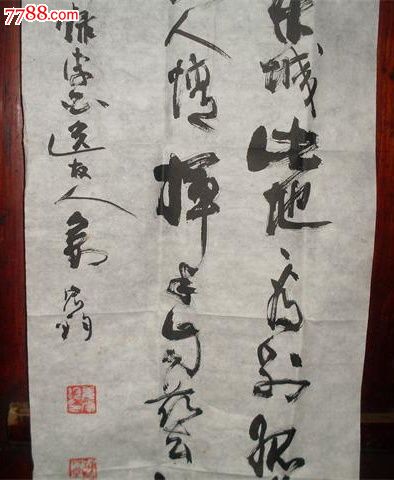 7788.com
东城此地一为别孤
人情揮手自兹
録李白送友人劉